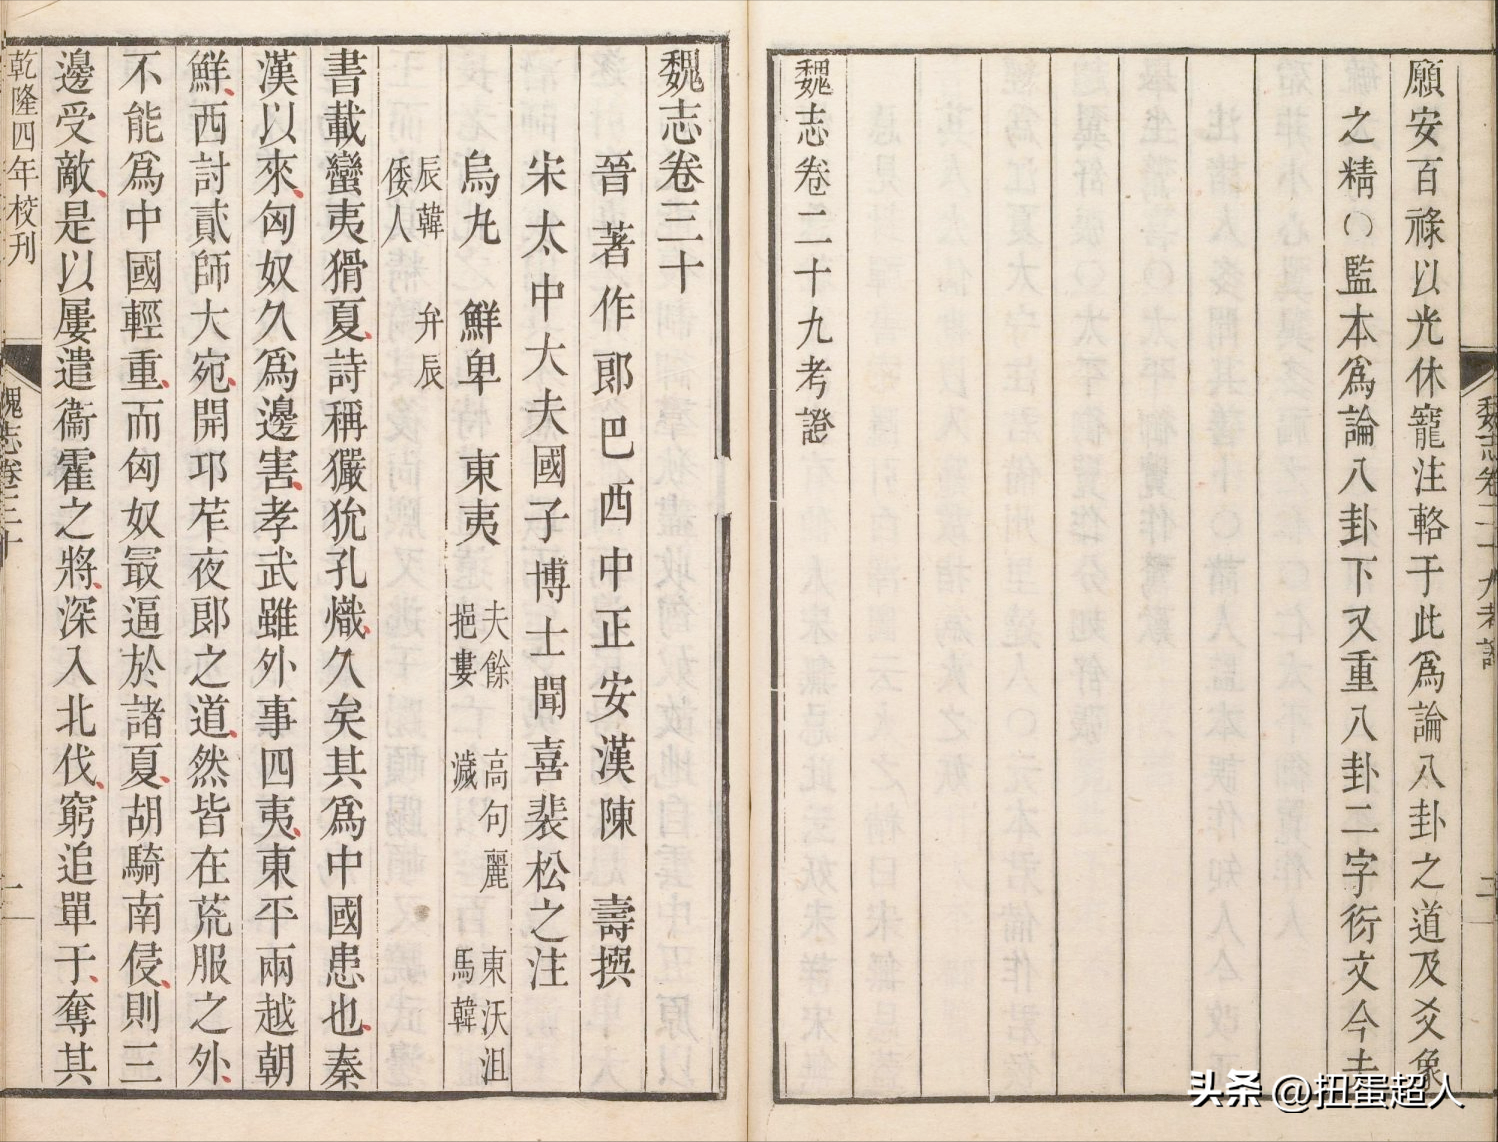 願安百祿以光休寵注輅于此爲論八卦之道及爻象
之精〇監本爲論八卦下又重八卦二字衍文今去
魏志卷二十九考證
魏志卷三十
晉著作郎巴西中正安漢陳壽撰
宋太中大夫國子博士聞喜裴松之注
烏丸 鮮卑 東夷 夫餘 高句麗 東沃沮
挹婁 濊 馬韓
辰韓 弁辰
倭人
書載蠻夷猾夏詩稱玁狁孔熾久矣其爲中國患也秦
漢以來匈奴久爲邊害孝武雖外事四夷東平兩越朝
鮮西討貳師大宛開邛苲夜郎之道然皆在荒服之外
不能爲中國輕重而匈奴最逼於諸夏胡騎南侵則三
邊受敵是以屢遣衞霍之將深入北伐窮追單于奪其
乾隆四年校刊
魏志卷三十
一
魏志卷二十九考證
頭条 @扭蛋超人